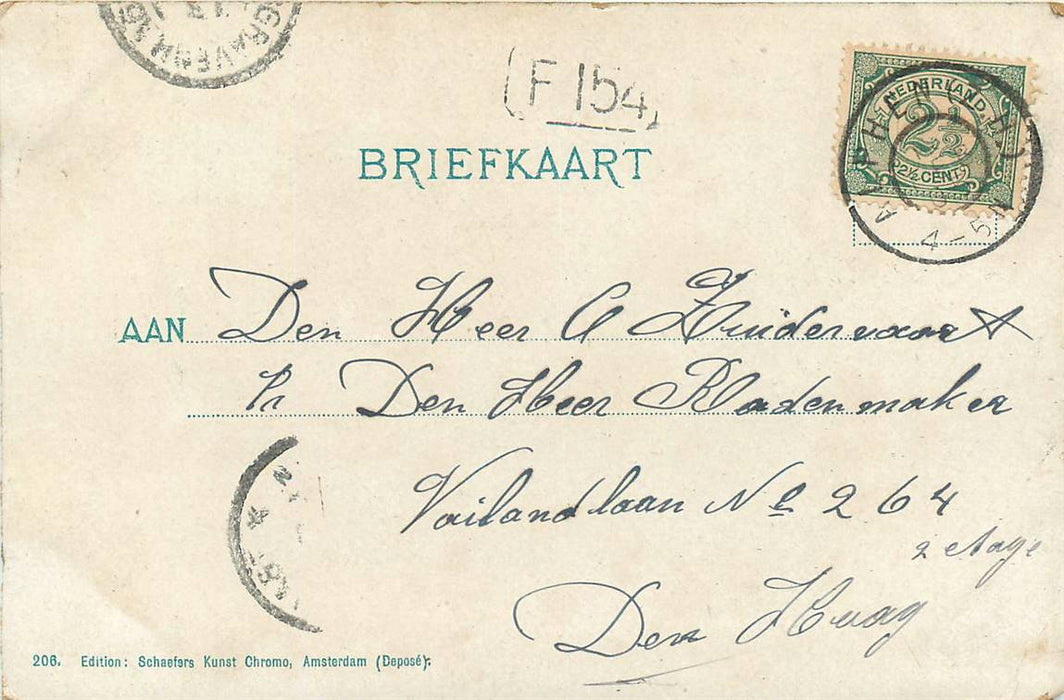 'SGRAVENH
F 154
BRIEFKAART
NEDERLAND
2½
2½ CENT
4-5N
AAN Den Heer A Zuidervaart
pr Den Heer Radenmaker
Vailandlaan No 264
2 etage
Den Haag
206. Edition: Schaefers Kunst Chromo, Amsterdam (Deposé).